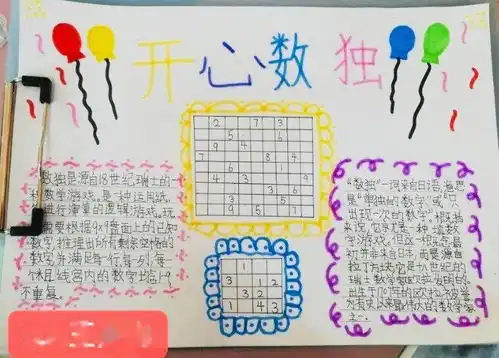 开心数独
数独是源自18世纪瑞士的一
种数学游戏。是一种运用纸、
笔进行演算的逻辑游戏。玩
家需要根据9×9盘面上的已知
数字,推理出所有剩余空格的
数字,并满足每一行、每一列、每一
个粗线宫内的数字均含1-9,
不重复。
2 7 3
5 6
9 4
7 8 4
6
4 3 9
9 8
3 5
9 5
1
3 1 2
3 2
1 4 3
"数独"一词来自日语,意思
是"单独的数字"或"只
出现一次的数字"。概括
来说,它就是一种填数
字游戏。但这一概念最
初并非来自日本,而是源自
拉丁方块,它是十八世纪的
瑞士数学家欧拉发明的。
出生于1707年的欧拉被誉
为有史以来最伟大的数学家
之一。